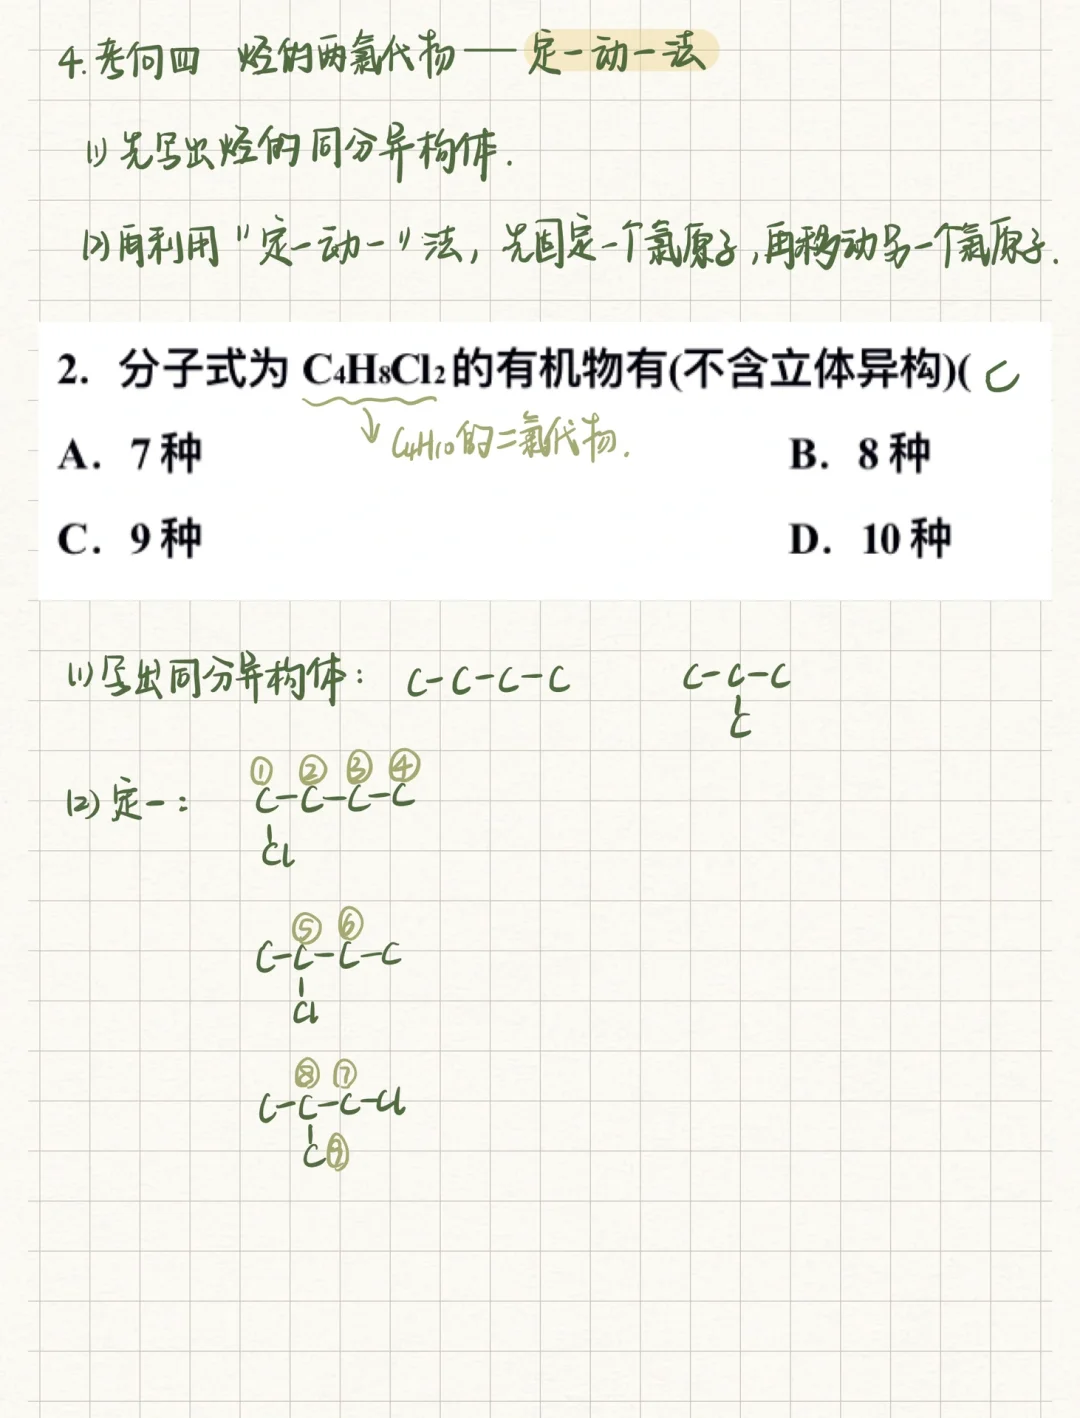 4.考向四 烃的两氯代物——定一动一法
(1)先写出烃的同分异构体.
(2)再利用"定一动一"法,先固定一个氯原子,再移动另一个氯原子.
2. 分子式为 C₄H₈Cl₂的有机物有(不含立体异构)( C
C₄H₁₀的二氯代物.
A. 7种 B. 8种
C. 9种 D. 10种
(1)写出同分异构体: C-C-C-C C-C-C
C
① ② ③ ④
(2)定一: C-C-C-C
Cl
⑤ ⑥
C-C-C-C
Cl
⑧ ⑦
C-C-C-Cl
C⑨